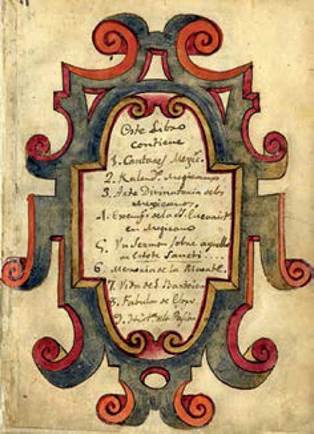 Este Libro
contiene
1. Cantares Mexic.
2. Kalend.º Mexicano
3. Arte Divinatoria de los
Mexicanos.
4. Exemp.s de la S. Eucarist.
en Mexicano
5. Un Sermon sobre aquello
Estote Sancti....
6. Memoria de la Muerte.
7. Vida de S. Barto
8. Fabulas de Esopo
9. Hist.ª de la Pasion